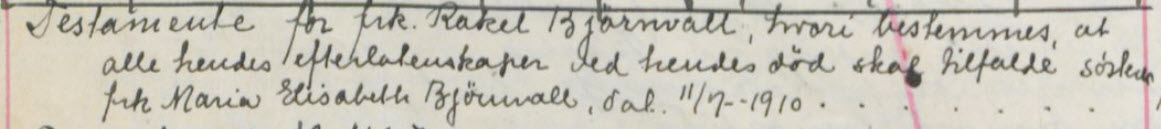 Testamente for frk. Rakel Björnvall, hvori bestemmes, at
alle hendes efterlatenskaper ved hendes död skal tilfalde
frk Maria Elisabeth Björnvall, dat. 11/7--1910 . . . . . . .